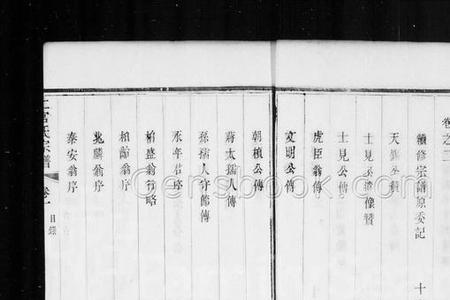 卷之二
續修宗譜原委記
十
天
士見公遺像贊
士見公傳
虎臣翁傳
文明公傳
朝楨公傳
蔣太孺人傳
孫孺人守節傳
永年君序
柏盛翁行略
柏齡翁序
兆麟翁序
泰安翁序
上官氏宗譜
卷一
目錄
Gensbook.com